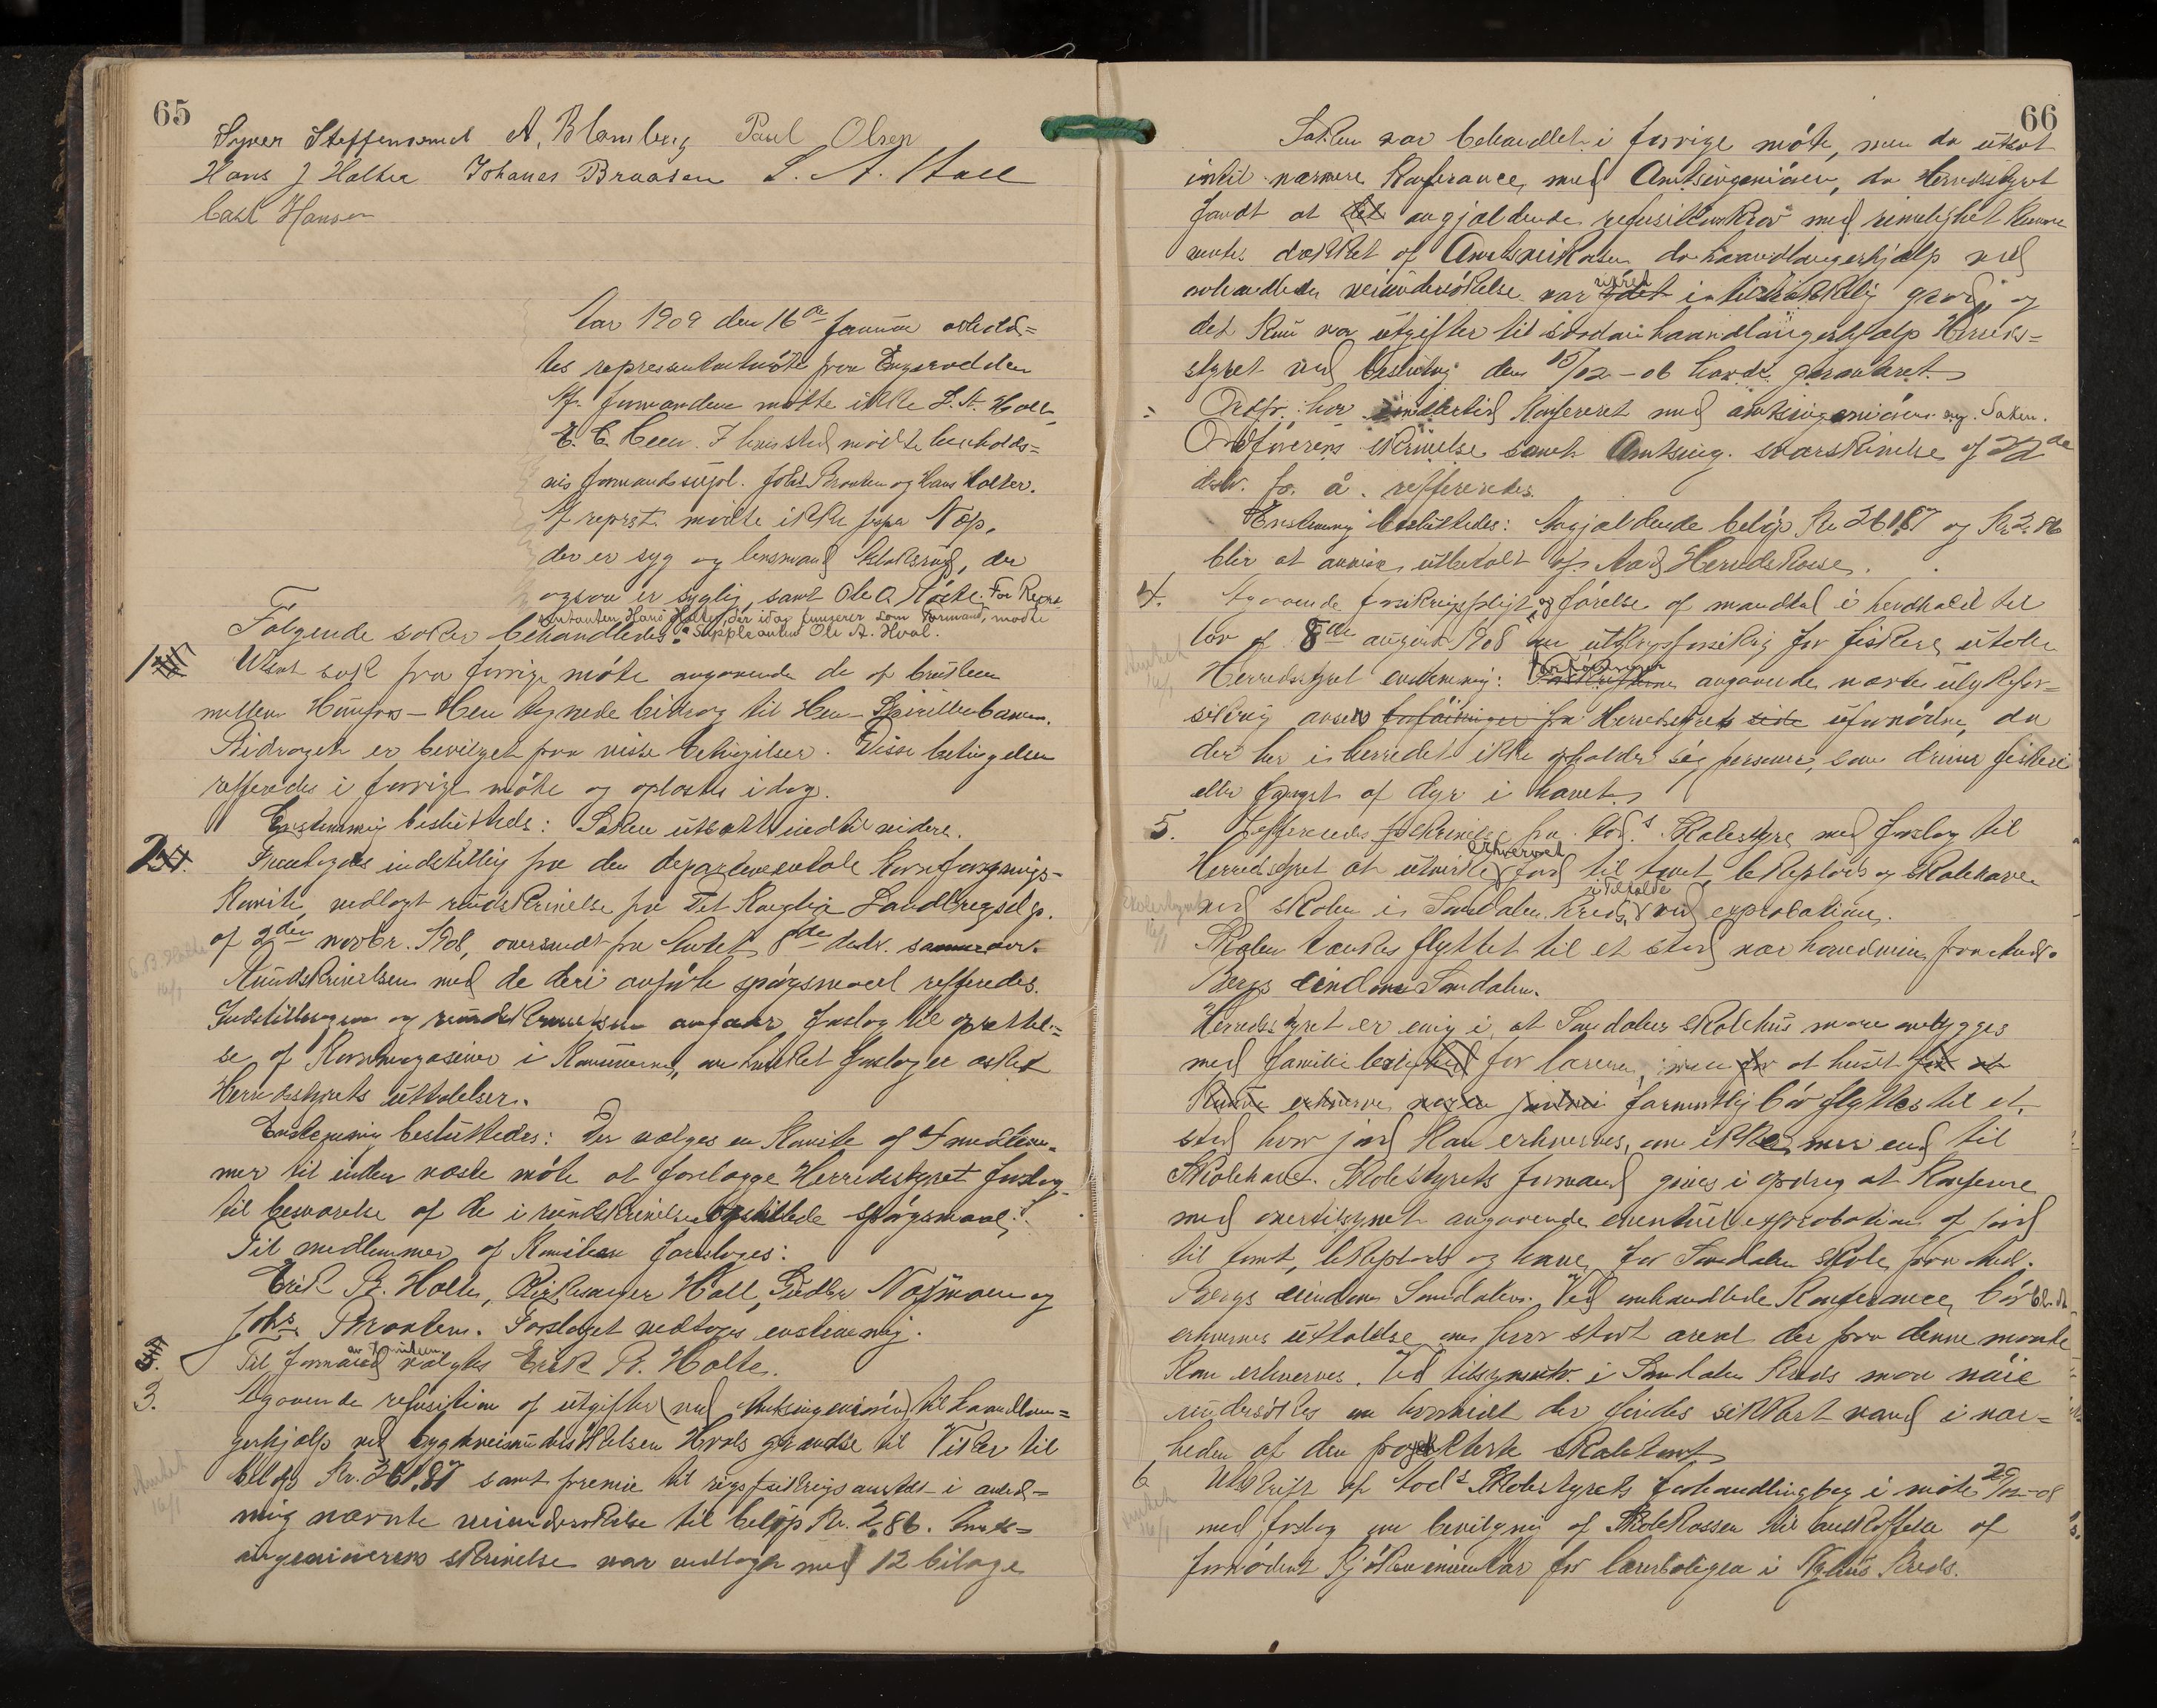 65
Syver Steffensrud A. Blomberg Paul Olsen
Hans J Holter Johannes Braaten L. A. Hall
Carl Hansen
Aar 1909 den 16de januar avhold=
tes representantmöte paa
Af formændene mötte ikke L. A. Hall
E. C. Heen. I hans sted mötte henholds=
vis formandssupl. Johs Braaten og Hans Holter.
Af reprst. mödte ikke Næp,
der er syg og lensmand, der
ogsaa er syglig, samt Ole A. For Repræ
sentanten Hans Holter, der idag fungerer som Formand, mødte
Følgende saker behandledes: Suppleanten Ole A. Hval.
1 Utsat sak fra forrige möte angaaende de af
mellem Hönefos–Hen tegnede bidrag til Hen–Sperillenbanen.
Bidraget er bevilget paa visse betingelser. Disse betingelser
refferedes i forrige möte og oplæstes idag.
Enstemmig besluttedes: Saken utsatt indtil videre.
2. Fremlagdes indstilling fra den departementale kornforsynings-
komite, vedlagt rundskrivelse fra Det Kongelige Landbrugsdep.
af 2den novbr. 1908, oversendt fra Amtet 8de desbr. samme aar.
Rundskrivelsen med de deri anførte spörgsmaal refferedes.
Indstillingen og rundskrivelsen angaar forslag til oprettel=
se af Kornmagasiner i Kommunerne, om hvilket forslag er æsket
Herredsstyrets uttalelser.
Enstemmig besluttedes: Der vælges en Komite af 4 medlem-
mer til inden næste möte at forelægge Herredsstyret forslag
til besvarelse af de i rundskrivelsen opstillede spörgsmaal.
Til medlemmer af Komiteen foresloges:
Erik B. Holte, Kirkesanger Hall, Næsmoen og
Johs Braaten. Forslaget vedtoges enstemmig.
av komiteen
Til formand valgtes Erik B. Holte.
3. Angaaende refusition af utgifter (ved Amtsingeniören) til haandlan=
gerhjælp ved bygdeveiundersökelsen Hvals grændse til Viker til
beløp Kr. 361.87 samt premie til rigsforsikringsanstalt i anled=
ning nævnte veiundersökelse til beløp Kr. 2.86. Amts=
ingeniørens skrivelse var vedlagt med 12 bilage
66
Saken var behandlet i forrige möte, men da utsat
intil nærmere Konferance med Amtsingeniören, da Herredsstyret
fandt at angjældende refusitionskrav med rimelighet kunne
ventes dækket af Amtsveikassen da haandlangerhjælp ved
omhandlede veiundersökelse var utilstrækkelig og
det kun var utgifter til saadan haandlangerhjælp Herreds=
styret ved beslutning den 15/02-06 havde garanteret.
Ordf. har imidlertid Konfereret med amtsingeniören ang. Saken.
Ordförerens skrivelse samt Amtsing. svarskrivelse af 22de
desbr. f. å. refferertes.
Enstemmig besluttedes: Angjældende beløp Kr 361.87 og Kr 2.86
blir at anvise utbetalt af Aads Herredskasse.
4. Angaaende forsikringspligt og förelse af mandtal i henhold til
lov af 8de august 1908 om ulykkesforsikring for fiskere uttalte
Herredsstyret enstemmig: Forføininger angaaende nævnte ulykkesfor=
sikring ansees forføininger fra Herredsstyrets side ufornødne, da
der her i herredet ikke opholder sig personer, som driver fiskeri
eller fangst af dyr i havet.
5. Refferertes skrivelse fra Aads Skolestyre med forslag til
erhvervet
Herredsstyret at utvirke jord til tomt, lekeplads og skolehave
i tilfælde
ved skolen i Semdalen Kreds ved exprobation.
Skolen tænkes flyttet til et sted nær hovedveien fra And.
Bergs eiendom Semdalen.
Herredsstyret er enig i, at Semdalens skolehus maa ombygges
med familiebolig for læreren, men at huset
formentlig bör flyttes til et
sted hvor jord kan erhverves, om ikke mer end til
Skolehave. Skolestyrets formand gives i opdrag at Konferere
med overtilsynet angaaende eventuel exprobation af jord
til tomt, lekeplads og have for Semdalen skole fra And.
Bergs eiendom Semdalen. Ved omhandlede Konferance bör bl.a.
erhverves uttalelse om hvor stort areal der fra denne maate
kan erhverves. Ved tilsynsutv. i Semdalen Kreds maa nöie
undersökes om hvorvidt der findes sikkert vand i nær=
heden af den projekterte skoletomt.
6 Utskrift af Aads Skolestyrets forhandlingsbog i möte 29/12-08
med forslag om bevilgning af Skolekassen til anskaffelse af
fornödent Kjökkeninventar for lærerboligen i Kreds.